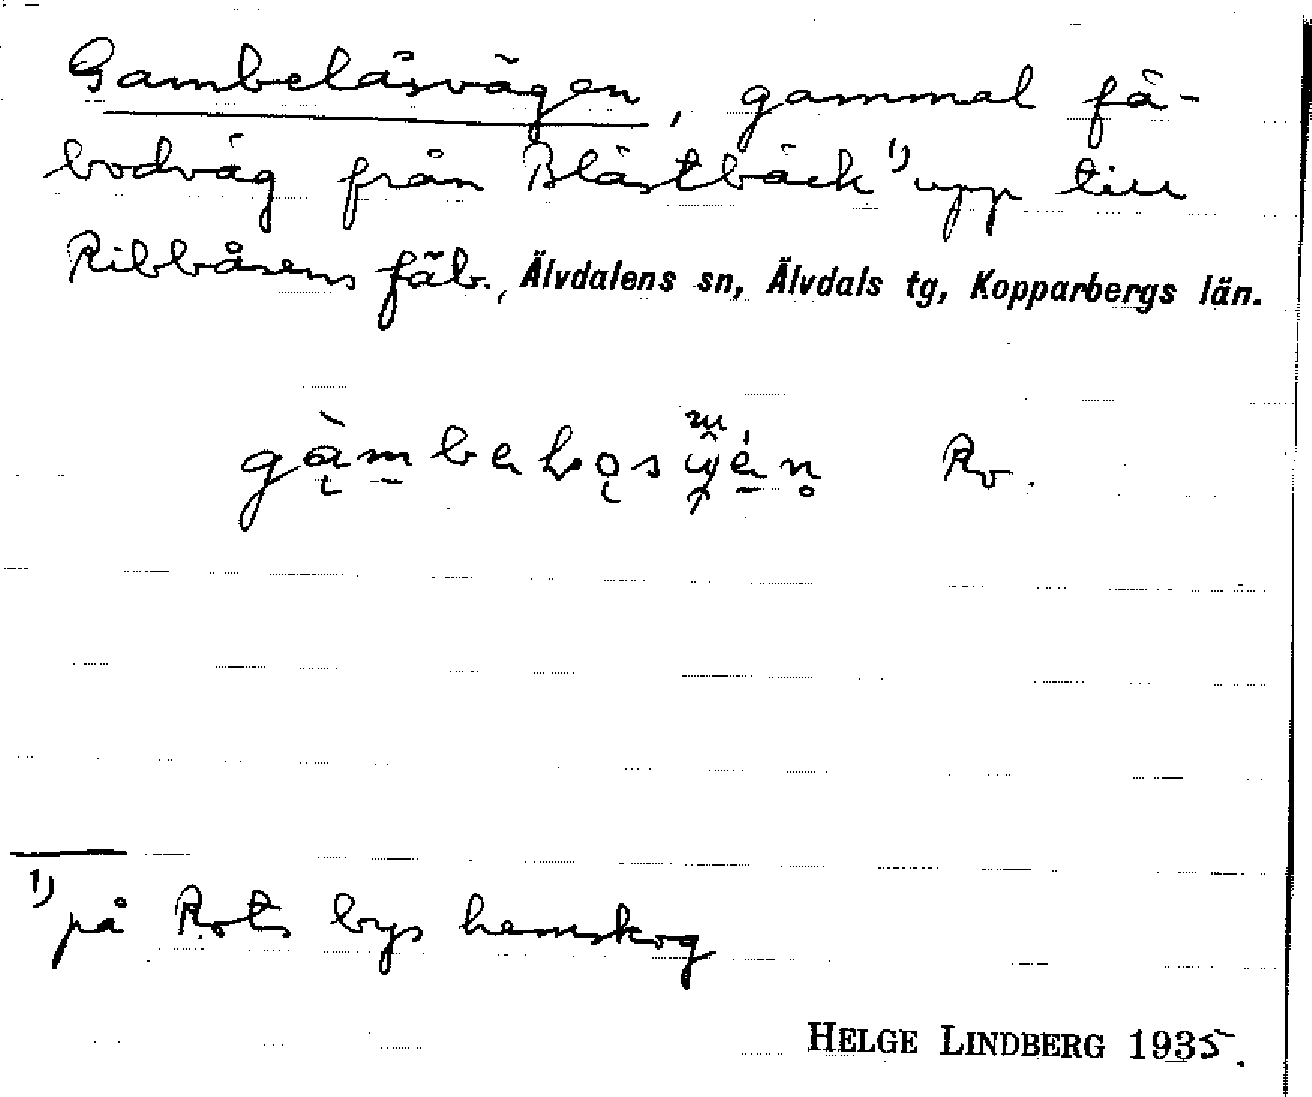 Gambelåsvägen, gammal fä-
bodväg från Blästbäck ¹⁾ upp till
Ribbåsens fäb., Älvdalens sn, Älvdals tg, Kopparbergs län.
Ro.
¹⁾ på Rots bys hemskog
HELGE LINDBERG 1935.